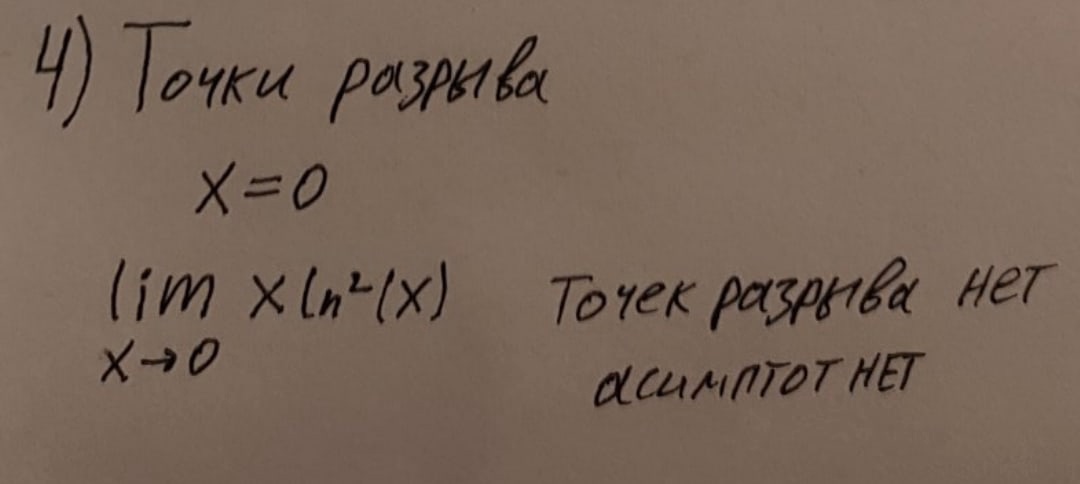 4) Точки разрыва
x=0
lim x ln²(x) Точек разрыва нет
x→0
асимптот нет